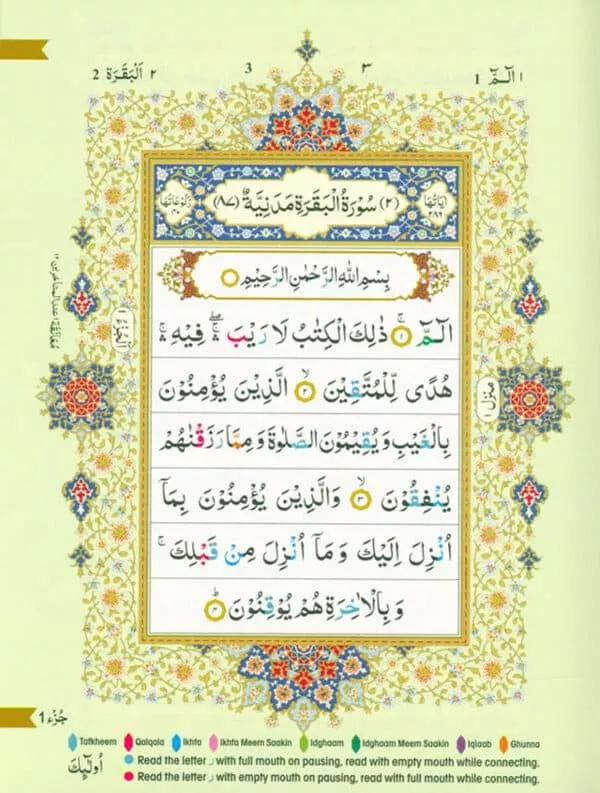 ١ الٓمّٓ 1
3 ٣
٢ اَلْبَقَرَة 2
اٰيَاتُهَا ٢٨٦
(٢) سُوْرَةُ الْبَقَرَةِ مَدَنِيَّةٌ (٨٧)
رُكُوْعَاتُهَا ٤٠
بِسْمِ اللهِ الرَّحْمٰنِ الرَّحِيْمِ
الٓمّٓ ۚ ١ ذٰلِكَ الْكِتٰبُ لَا رَيْبَ ۛۖ فِيْهِ ۛۚ
هُدًى لِّلْمُتَّقِيْنَ ۙ ٢ الَّذِيْنَ يُؤْمِنُوْنَ
بِالْغَيْبِ وَيُقِيْمُوْنَ الصَّلٰوةَ وَمِمَّا رَزَقْنٰهُمْ
يُنْفِقُوْنَ ۙ ٣ وَالَّذِيْنَ يُؤْمِنُوْنَ بِمَاۤ
اُنْزِلَ اِلَيْكَ وَمَاۤ اُنْزِلَ مِنْ قَبْلِكَ ۚ
وَبِالْاٰخِرَةِ هُمْ يُوْقِنُوْنَ ؕ ٤
منزل ١
اَلْجُزْءُ ١
جُزْء 1
Tafkheem Qalqala Ikhfa Ikhfa Meem Saakin Idghaam Idghaam Meem Saakin Iqlaab Ghunna
Read the letter ر with full mouth on pausing, read with empty mouth while connecting.
Read the letter ر with empty mouth on pausing, read with full mouth while connecting.
اُولٰٓئِكَ